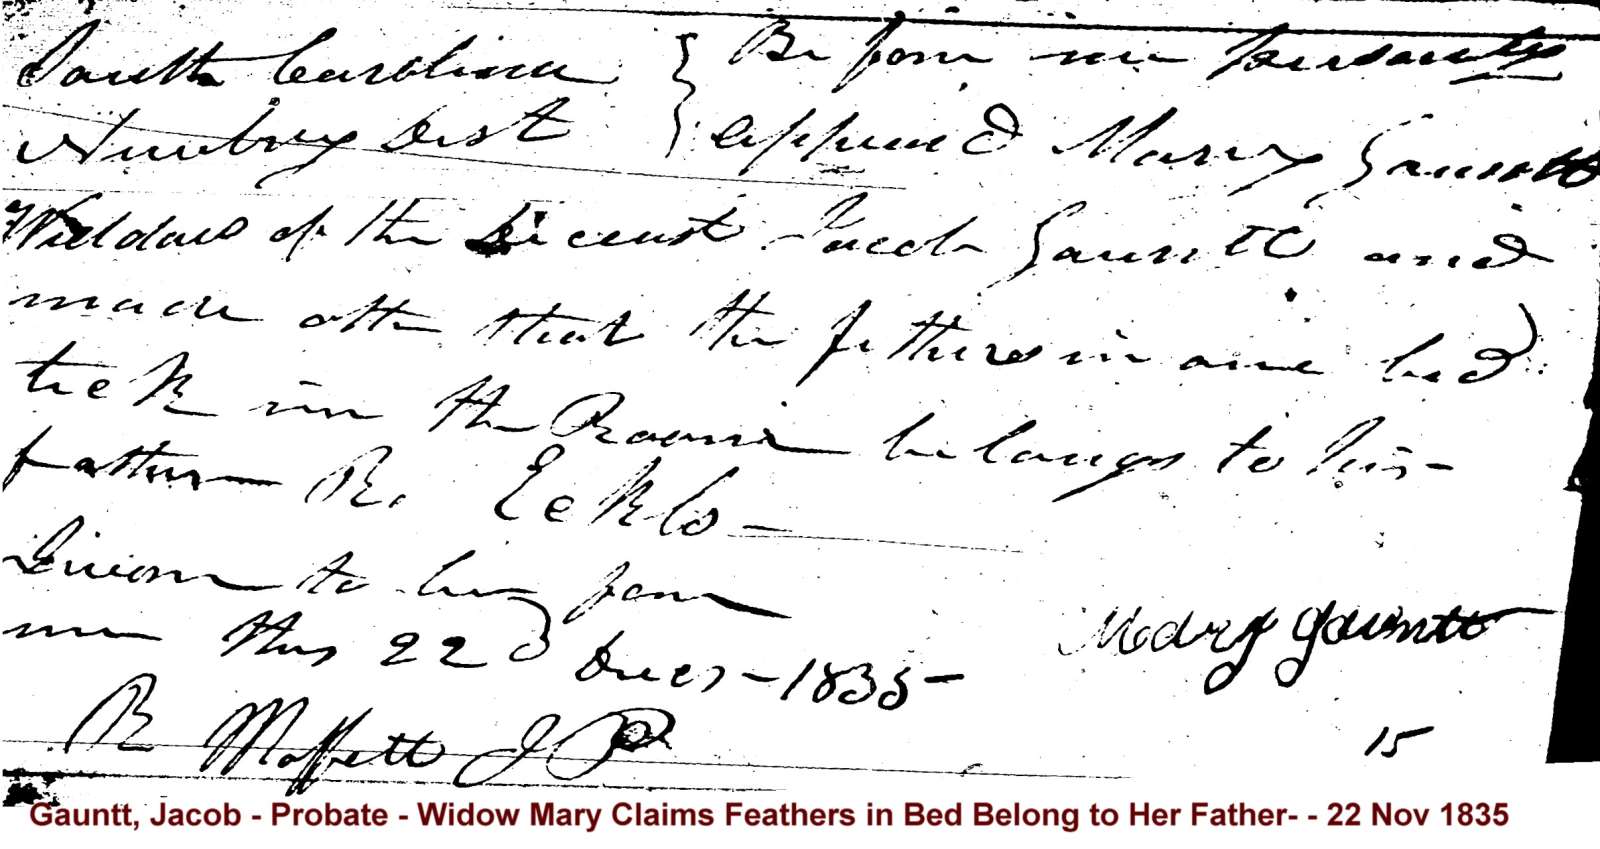 South Carolina } Be fore me persinaly
Newbry Dist } appeared Mary Gauntt
Widdow of the Diceast Jacob Gauntt and
made oth that the fethers in one bed
tick in the Roome belongs to hir
father R. Eeklo
Sworn to be fore
me this 22d Decr 1835
Mary Gauntt
R Moffett J P
15
Gauntt, Jacob - Probate - Widow Mary Claims Feathers in Bed Belong to Her Father- - 22 Nov 1835